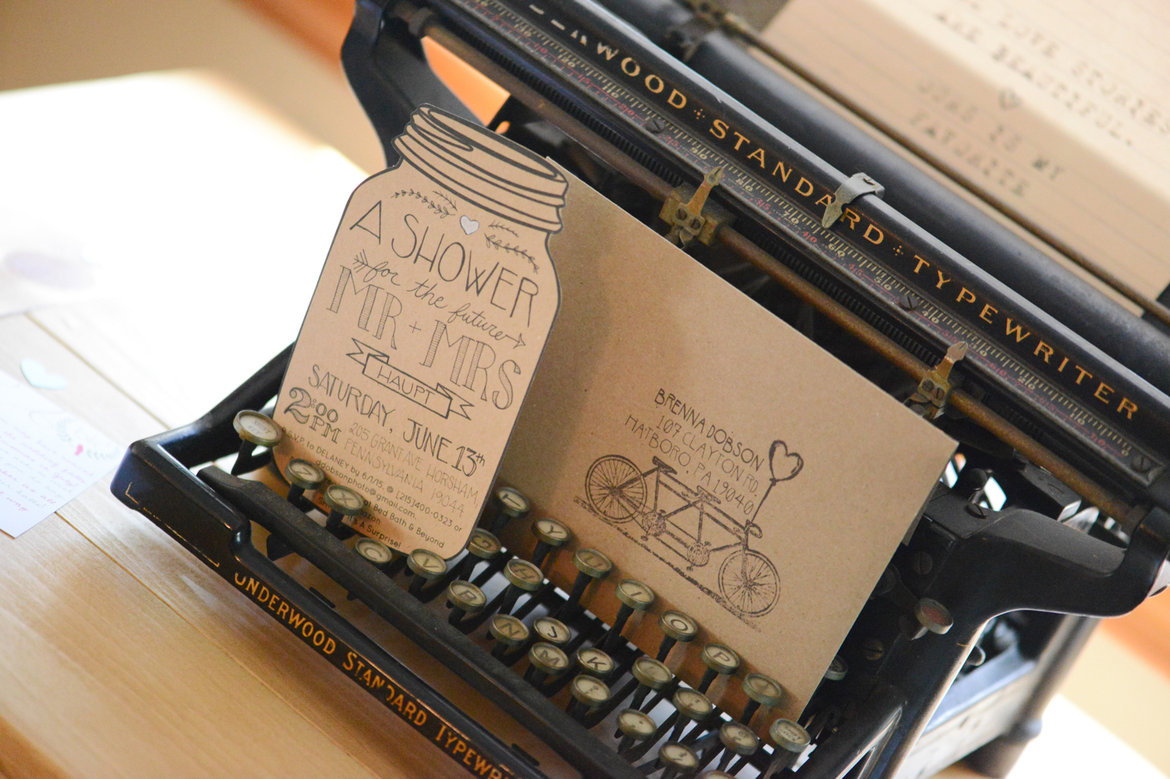 UNDERWOOD STANDARD TYPEWRITER
JUNE IS MY
FAVORITE
A SHOWER
for the future
MR + MRS
HAUPT
SATURDAY, JUNE 13th
2:00 PM
205 GRANT AVE HORSHAM
PENNSYLVANIA 19044
to DELANEY by 6/1/15. @ (215)400-0323 or
dobsonphoto@gmail.com
at Bed Bath & Beyond
A Surprise!
BRENNA DOBSON
107 CLAYTON RD.
HATBORO, PA 19040
UNDERWOOD STANDARD TYPEWR